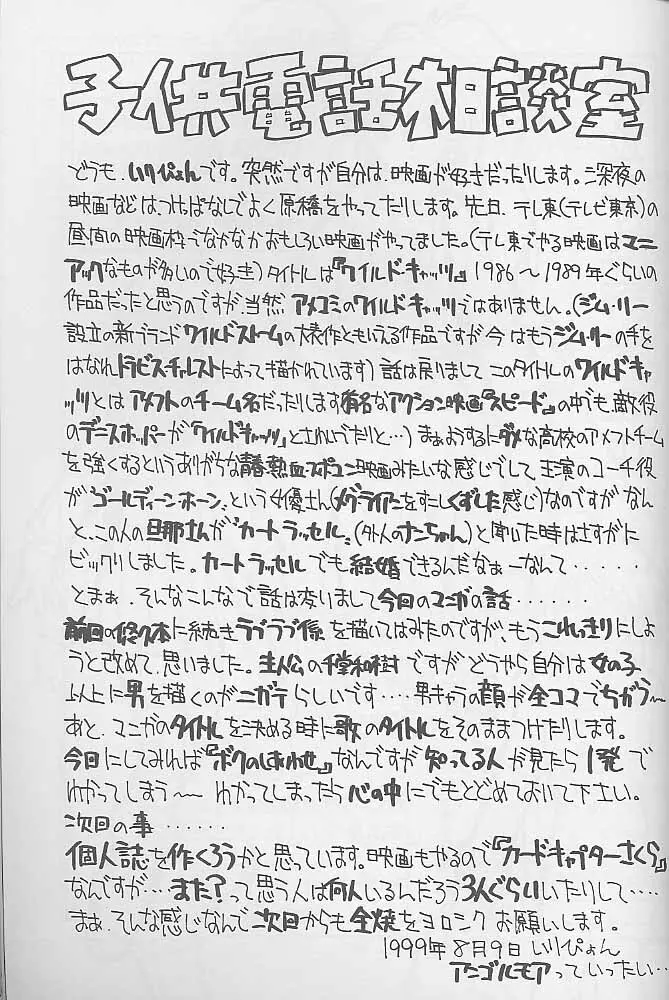 子供電話相談室
どうも、いりぴょんです。突然ですが自分は、映画が好きだったりします。深夜の
映画などは、つけっぱなしでよく原稿をやってたりします。先日、テレ東(テレビ東京)の
昼間の映画枠でなかなかおもしろい映画がやってました。(テレ東でやる映画はマニ
アックなものが多いので好き)タイトルは『ワイルド・キャッツ』1986〜1989年ぐらいの
作品だったと思うのですが、当然アメコミのワイルドキャッツではありません。(ジム・リー
設立の新ブランドワイルドストームの代表作ともいえる作品ですが今はもうジム・リーの手を
はなれトラビス・チャレストによって描かれています)話は戻りましてこのタイトルのワイルドキャ
ッツとはアメフトのチーム名だったりします有名なアクション映画『スピード』の中でも、敵役
のデニスホッパーが「ワイルドキャッツ」とさけんでたりと…)まぁようするにダメな高校のアメフトチーム
を強くするというありがちな青春・熱血・スポコン映画みたいな感じでして主演のコーチ役
が"ゴールディーン・ホーン"という女優さん(メグ・ライアンをすこしくずした感じ)なのですがなん
と、この人の旦那さんが"カートラッセル"(外人のナンちゃん)と聞いた時はさすがに
ビックリしました。カートラッセルでも結婚できるんだなぁーなんて・・・・・
とまぁ、そんなこんなで話は変りまして今回のマンガの話・・・・・・・
前回の悠久本に続きラブラブ係を描いてはみたのですが、もうこれっきりにしよ
うと改めて、思いました。主人公の千堂和樹ですがどうやら自分は女の子
以上に男を描くのがニガテらしいです・・・・男キャラの顔が全コマでちがう〜
あと、マンガのタイトルを決める時に歌のタイトルをそのままつけたりします。
今回にしてみれば『ボクのしあわせ』なんですが知ってる人が見たら1発で
わかってしまう〜〜わかってしまったら心の中にでもとどめておいて下さい。
次回の事・・・・・・
個人誌を作くろうかと思っています。映画もやるので『カードキャプターさくら』
なんですが…また?って思う人は何人いるんだろう3人ぐらいいたりして・・・・
まぁ、そんな感じなんで次回からも全焼をヨロシクお願いします。
1999年8月9日いりぴょん
アンゴルモアっていったい…